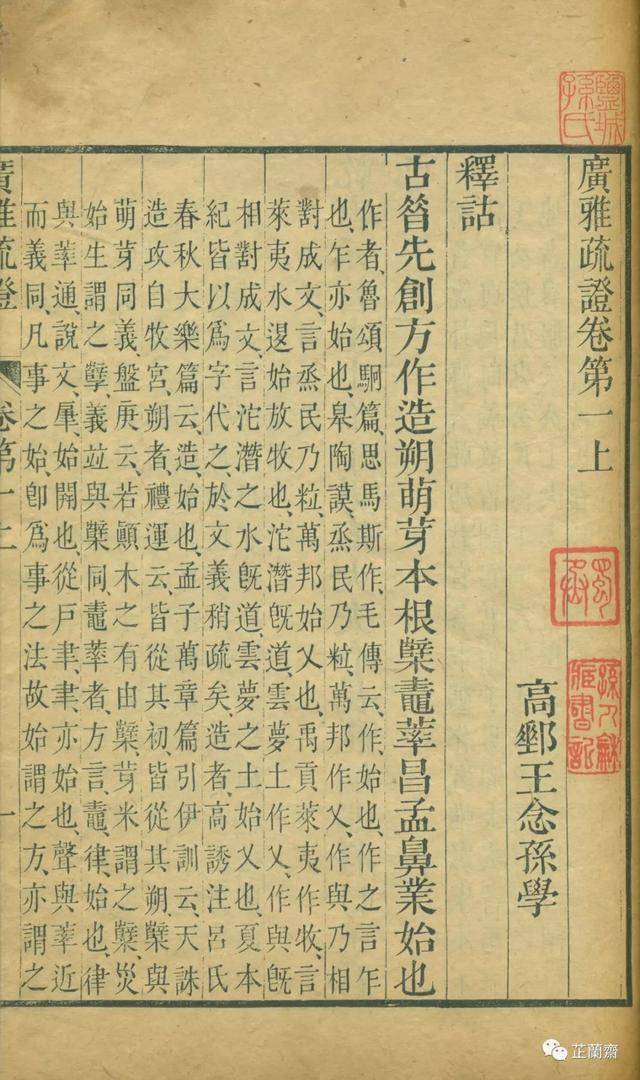 廣雅疏證卷第一上
高郵王念孫學
釋詁
古昝先創方作造朔萌芽本根櫱鼃䔹昌孟鼻業始也
作者、魯頌駉篇、思馬斯作、毛傳云、作、始也、作之言乍
也、乍亦始也、皋陶謨、烝民乃粒、萬邦作乂、作與乃相
對成文、言烝民乃粒、萬邦始乂也、禹貢、萊夷作牧、言
萊夷水退始放牧也、沱潛旣道、雲夢土作乂、作與旣
相對成文、言沱潛之水旣道、雲夢之土始乂也、夏本
紀皆以爲字代之、於文義稍疏矣、造者、高誘注呂氏
春秋大樂篇云、造、始也、孟子萬章篇引伊訓云、天誅
造攻自牧宮、朔者、禮運云、皆從其初、皆從其朔、櫱與
萌芽同義、盤庚云、若顚木之有由櫱、芽米謂之櫱、災
始生謂之孽、義竝與櫱同、鼃䔹者、方言、鼃、律、始也、律
與䔹通、說文、肁、始開也、從戶聿、聿亦始也、聲與䔹近
而義同、凡事之始、卽爲事之法、故始謂之方、亦謂之
廣雅疏證 卷第一上 一
鹽城孫氏
芷蘭齋